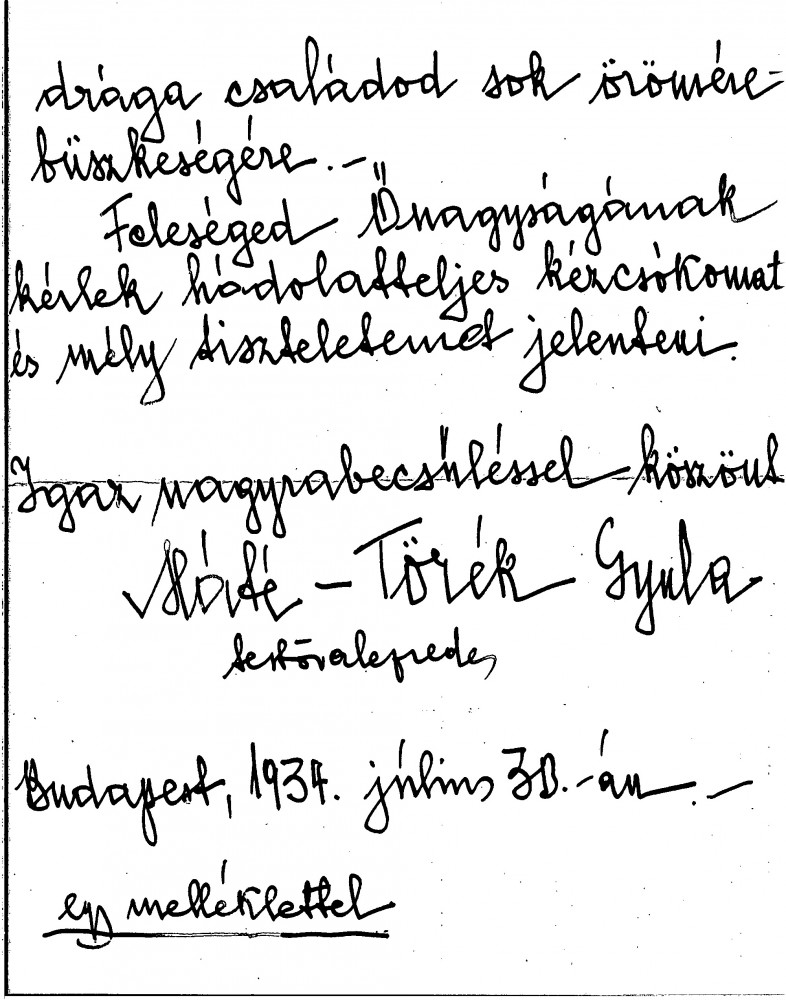 drága családod sok örömére-
büszkeségére.-
Feleséged Őnagyságának
kérlek hódolatteljes kézcsókomat
és mély tiszteletemet jelenteni.
Igaz nagyrabecsüléssel köszönt
Máté - Törék Gyula
testőralezredes
Budapest, 1934. július 30.-án.-
egy melléklettel